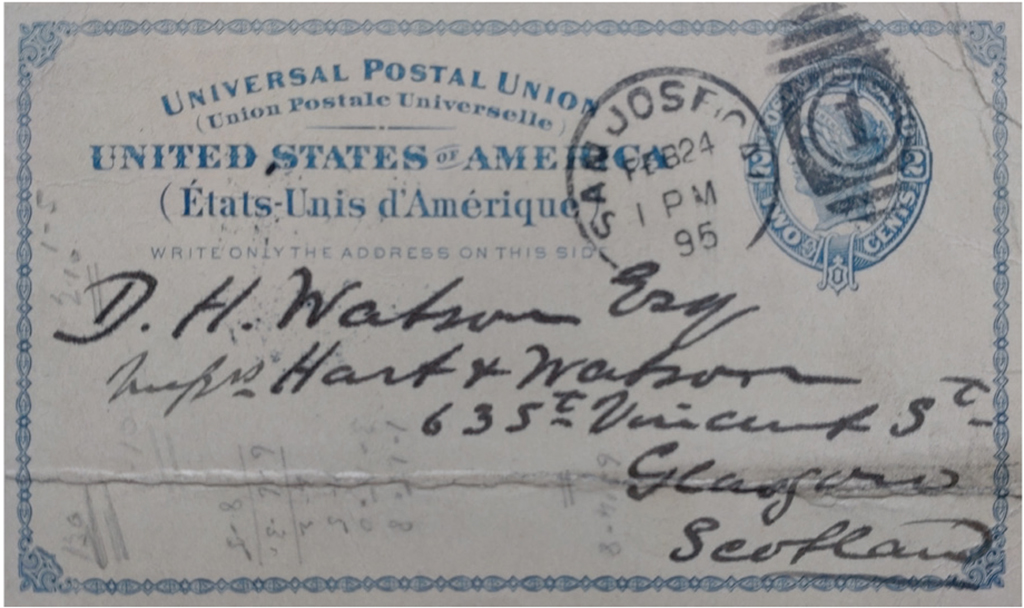 UNIVERSAL POSTAL UNION
(Union Postale Universelle)
UNITED STATES OF AMERICA
(États-Unis d'Amérique
WRITE ONLY THE ADDRESS ON THIS SIDE
SAN JOSE
FEB 24
1 PM
95
1
2 2
TWO CENTS
D. H. Watson Esq
Messrs Hart & Watson
63 St Vincent St
Glasgow
Scotland